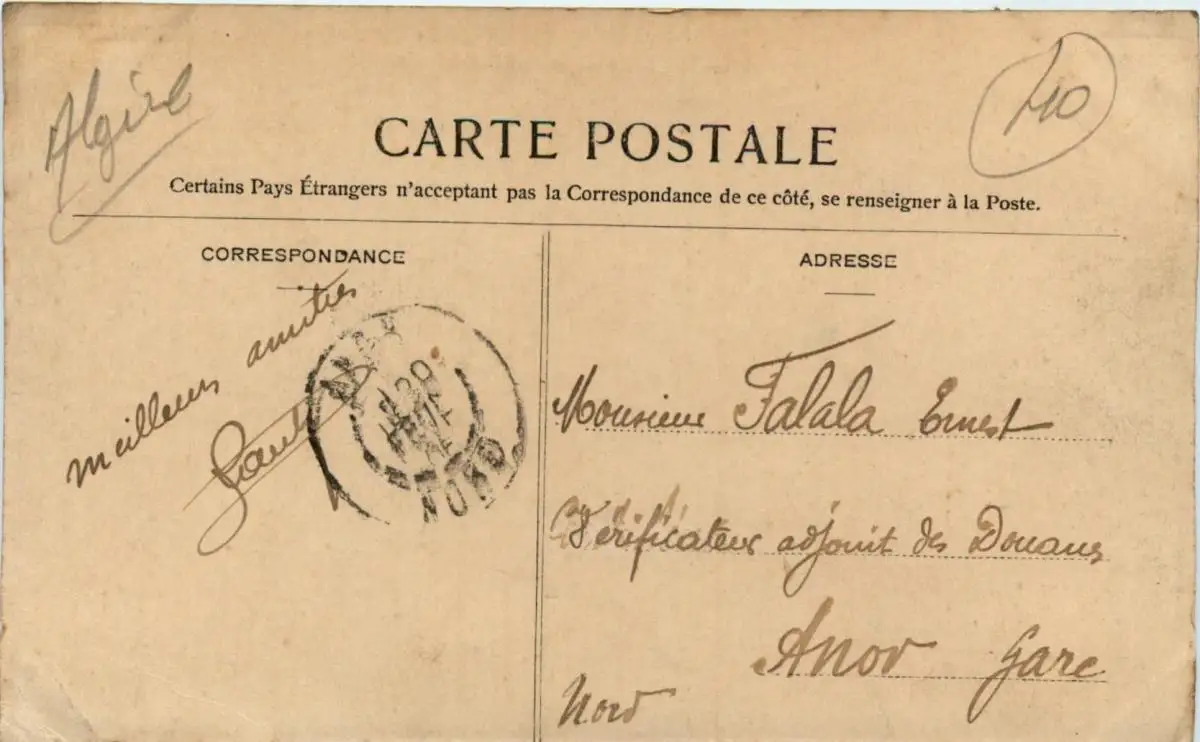 Algérie
40
CARTE POSTALE
Certains Pays Étrangers n'acceptant pas la Correspondance de ce côté, se renseigner à la Poste.
CORRESPONDANCE
meilleurs amitiés
NORD
ADRESSE
Monsieur Falala Ernest
Vérificateur adjoint des Douanes
Anor Gare
Nord